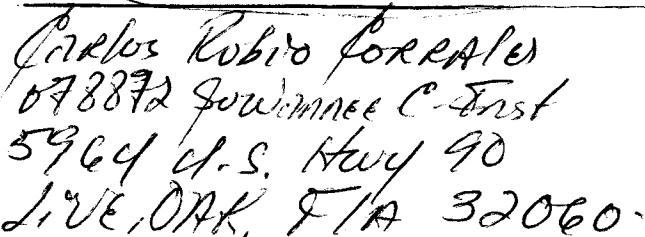 Carlos Rubio Corrales
078872 Suwannee C-Inst
5964 U.S. Hwy 90
LIVE, OAK, FlA 32060.